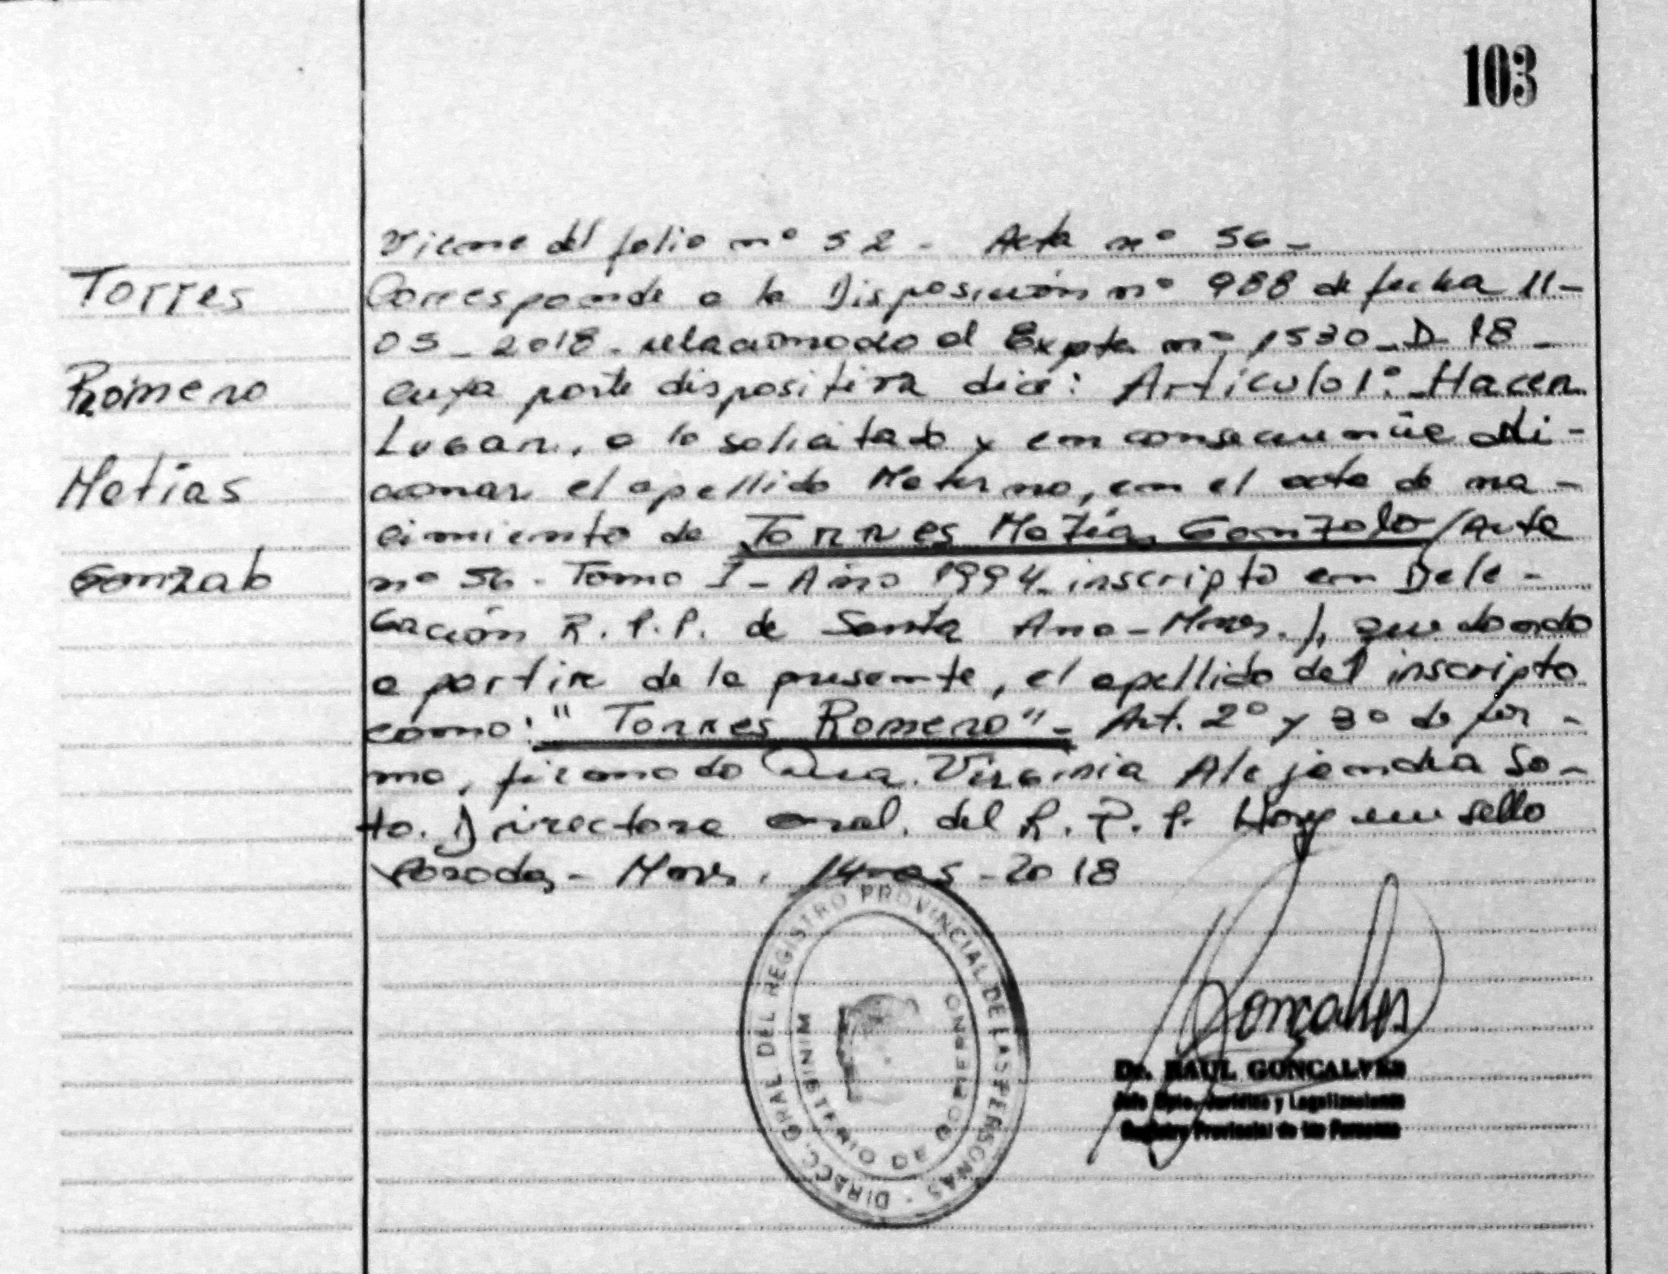 103
Viene del folio nº 52 - Acta nº 56 -
Torres
Corresponde a la Disposición nº 988 de fecha 11-
05 - 2018 - relacionado al Expte nº 1530 - D - 18 -
Romero
cuya parte dispositiva dice: Artículo 1º - Hacer
Lugar, a lo solicitado y en consecuencia Adi-
Matías
cionar el apellido Materno, en el acta de na-
cimiento de Torres Matías Gonzalo (Acta
Gonzalo
nº 56 - Tomo I - Año 1994 - inscripto en Dele-
gación R. P. P. de Santa Ana - Mnes.), quedando
a partir de la presente, el apellido del inscripto
como: "Torres Romero" - Art. 2º y 3º de for-
ma, firmado Dra. Virginia Alejandra So-
to. Directora Gral. del R. P. P. Hay un sello
Posadas - Mnes. 14-05-2018
DIRECC. GRAL DEL REGISTRO PROVINCIAL DE LAS PERSONAS -
MINISTERIO DE GOBIERNO
Goncalves
Dr. RAUL GONCALVES
Jefe Dpto. Jurídico y Legalizaciones
Registro Provincial de las Personas